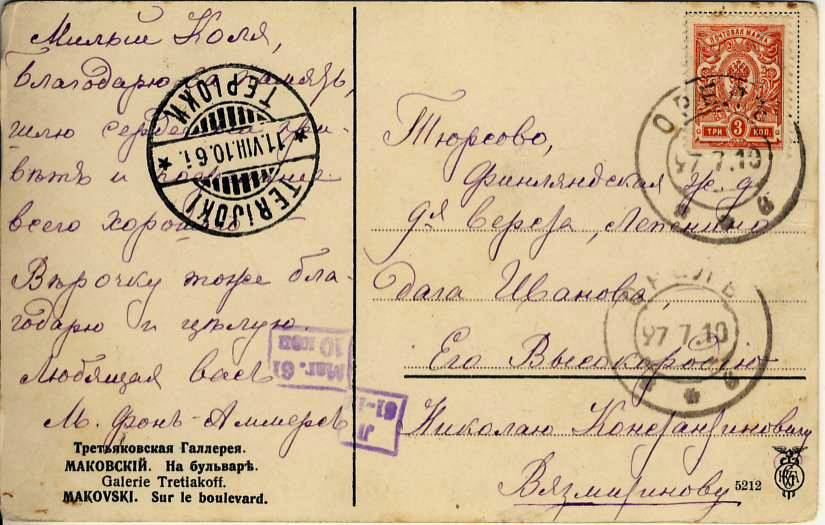 Милый Коля,
благодарю за память,
шлю сердечный при-
вѣтъ и
всего хорошаго
Вѣрочку тоже бла-
годарю и цѣлую.
Любящая васъ
М. фонъ-Аммерсъ
Третьяковская Галлерея.
МАКОВСКІЙ. На бульварѣ.
Galerie Tretiakoff.
MAKOVSKI. Sur le boulevard.
ТЕРІОКИ
11.VIII.10.6 i.
TERIJOKI
Маг. 61
10 коп
ПОЧТОВАЯ МАРКА
ТРИ 3 КОП
27.7.10
27 7.10
Тюрсево,
Финляндская ж. д.
дача Иванова,
Его Высокородію
Николаю Константиновичу
Вязмитинову
5212